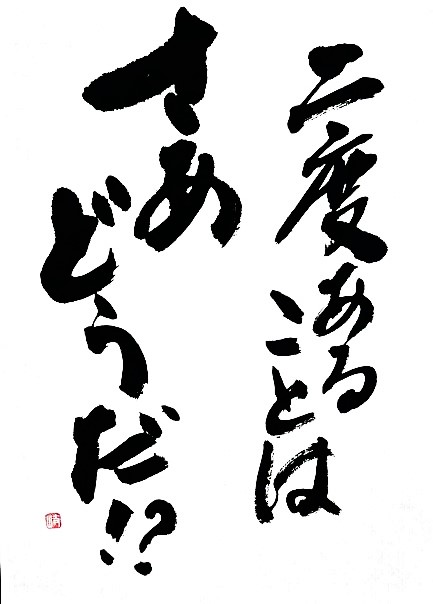 二度あることは
さあどうだ!?